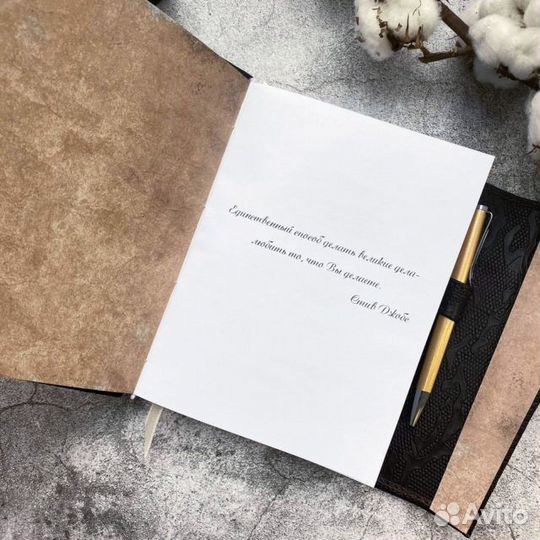 Единственный способ делать великие дела-
любить то, что Вы делаете.
Стив Джобс
Avito